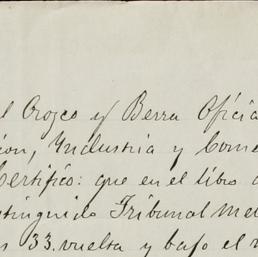 l Orozco y Berra Oficia
ion, Industria y Come
Certifico: que en el libro
stinguido Tribunal Me
s 33. vuelta y bajo el